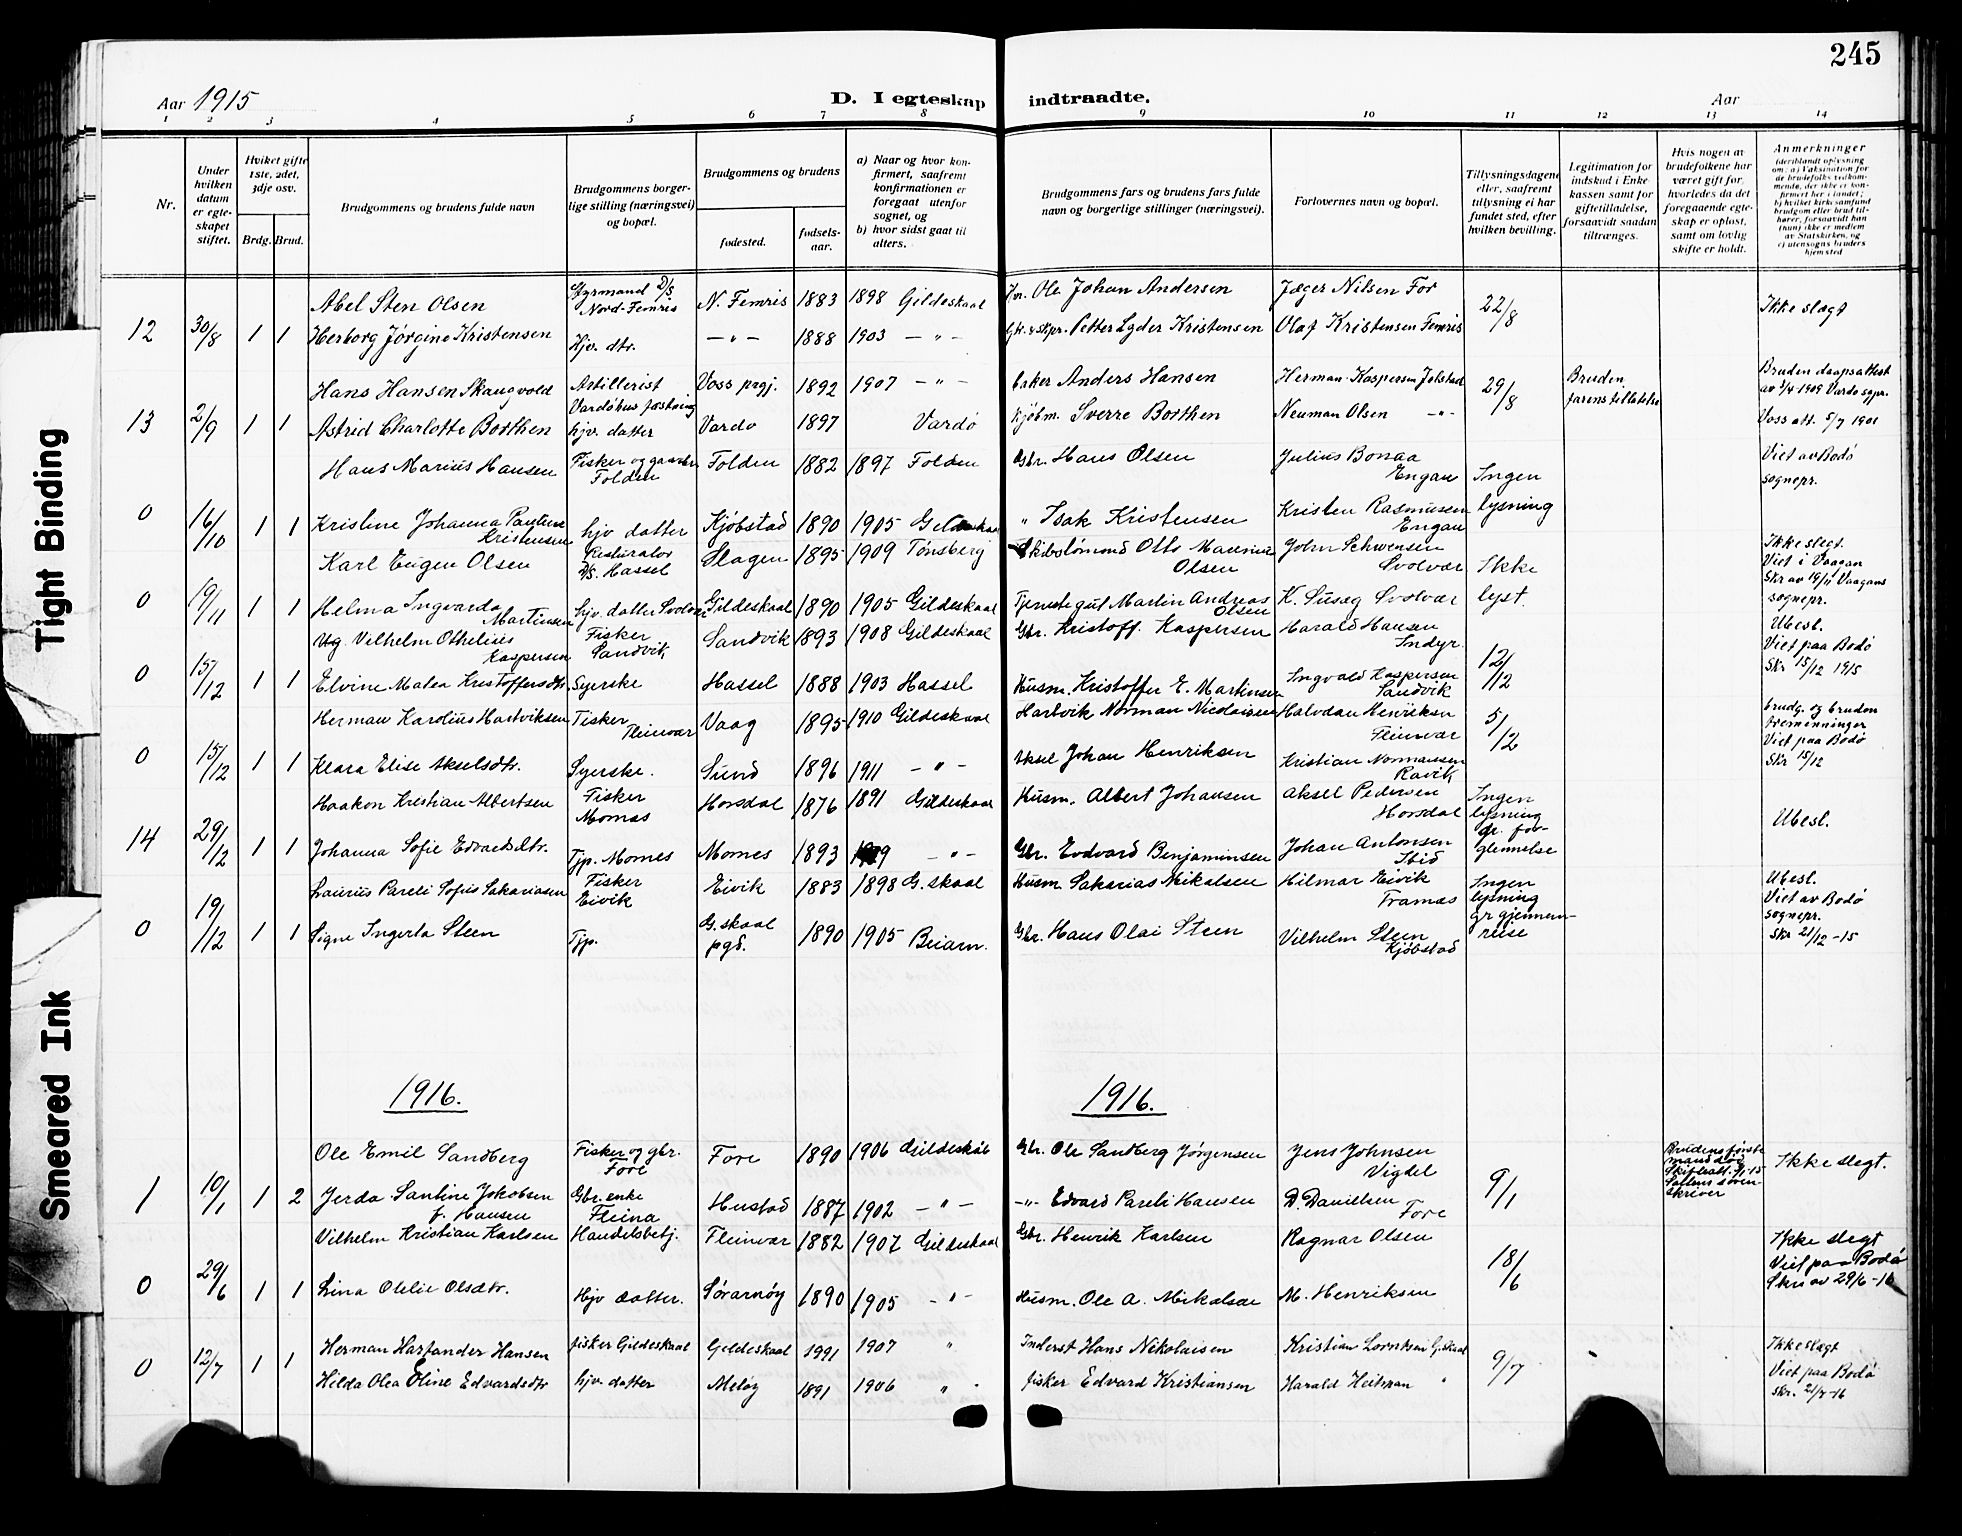 245
Aar 1915
D. I egteskap indtraadte.
Aar
1 2 3 4 5 6 7 8 9 10 11 12 13 14
Nr.
Under hvilken datum er egteskapet stiftet.
Hvilket gifte 1ste, 2det, 3dje osv.
Brdg. Brud.
Brudgommens og brudens fulde navn
Brudgommens borgerlige stilling (næringsvei) og bopæl.
Brudgommens og brudens
fødested.
fødselsaar.
a) Naar og hvor konfirmert, saafremt konfirmationen er foregaat utenfor sognet, og
b) hvor sidst gaat til alters.
Brudgommens fars og brudens fars fulde navn og borgerlige stillinger (næringsvei).
Forlovernes navn og bopæl.
Tillysningsdagene eller, saafremt tillysning ei har fundet sted, efter hvilken bevilling.
Legitimation for indskud i Enkekassen samt for giftetilladelse, forsaavidt saadan tiltrænges.
Hvis nogen av brudefolkene har været gift før, hvorledes da det foregaaende egteskap er opløst, samt om lovlig skifte er holdt.
Anmerkninger
Abel Sten Olsen Styrmand D/S Nord-Femris N. Femris 1883 1898 Gildeskaal Ole Johan Andersen Jæger Nilsen For Ikke slegt
12 30/8 1 1 Herborg Jørgine Kristensen Hjv. dtr. — " — 1888 1903 — " — Petter Lyder Kristensen Olaf Kristensen Femris 22/8
Hans Hansen Skaugvold Artillerist Vardøhus fæstning Voss prgj. 1892 1907 — " — Anders Hansen Herman Kaspersen 29/8 Bruden farens tilladelse Bruden daapsattest
13 2/9 1 1 Astrid Charlotte Borthen hjv. datter Vardø 1897 Vardø Kjøbm. Sverre Borthen Neuman Olsen — " — Voss att. 5/7 1901
Hans Marius Hansen Fisker og gaardbr Folden Folden 1882 1897 Folden Gbr. Hans Olsen Julius Bonaa Engan Ingen lysning Viet av Bodø sognepr.
0 16/10 1 1 Kristine Johanna Pauline Kristensen hjv datter Kjøbstad 1890 1905 Gildeskaal " Isak Kristensen Kristen Rasmussen Engan
Karl Eugen Olsen D/S. Hassel Slagen 1895 1909 Tønsberg Otto Olsen John Schwensen Svolvær Ikke lyst. Ikke slegt. Viet i Vaagan Skr av 19/11 Vaagans sognepr.
0 19/11 1 1 Helma Ingvarda Martinsen hjv datter Svolvær Gildeskaal 1890 1905 Gildeskaal Tjenestegut Martin Andreas Olsen Svolvær
Vilhelm Othelius Kaspersen Fisker Sandvik Sandvik 1893 1908 Gildeskaal Gbr. Kristoff. Kaspersen Harald Hansen Indyr 12/12 Ubesl. Viet paa Bodø Skr 15/12 1915
0 15/12 1 1 Elvine Malea Kristoffersdtr. Syerske Hassel 1888 1903 Hassel Husm. Kristoffer E. Martinsen Ingvald Kaspersen Sandvik
Herman Karolius Hartviksen Fisker Fleinvær Vaag 1895 1910 Gildeskaal Hartvik Norman Nicolaisen Halvdan Henriksen Fleinvær 5/12 brudg. og bruden tremenninger Viet paa Bodø Skr 15/12
0 15/12 1 1 Klara Elise Akselsdtr. Syerske. Sund 1896 1911 — " — Aksel Johan Henriksen Kristian Normansen Ravik
Haakon Kristian Albertsen Fisker Mornes Horsdal 1876 1891 Gildeskaal Husm. Albert Johansen Aksel Pedersen Horsdal Ingen lysning gr. forglemmelse Ubesl.
14 29/12 1 1 Johanna Sofie Edvardsdtr. Tjp. Mornes Mornes 1893 — " — Gbr. Edvard Benjaminsen Johan Antonsen
Laurius Pareli Sofus Sakariasen Fisker Eivik Eivik 1883 1898 G.skaal Husm Sakarias Mikalsen Hilmar Eivik Framnes Ingen lysning gr gjennemreise Ubesl. Viet av Bodø sognepr. Skr 21/12-15
0 19/12 1 1 Signe Ingerta Steen Tjp. G.skaal pgd. 1890 1905 Beiarn. Gbr. Hans Olai Steen Vilhelm Steen Kjøbstad
1916. 1916.
Ole Emil Sandberg Fisker og gbr. Fore Fore 1890 1906 Gildeskål Gbr. Ole Sandberg Jørgensen Jens Johnsen Vigdel 9/1 Brudens første mand død Ikke slegt.
1 10/1 1 2 Jerda Santine Jakobsen f. Hansen Gbr. enke Fleina Hustad 1887 1902 — " — — " — Edvard Pareli Hansen D. Danielsen Fore
Vilhelm Kristian Karlsen Handelsbetj. Fleinvær 1882 1907 Gildeskaal Gbr. Henrik Karlsen Ragnar Olsen 18/6 Ikke slegt Viet paa Bodø Skr av 29/6-16
0 29/6 1 1 Lina Otelie Olsdtr. Hjv datter. Sørarnøy 1890 1905 — " — Husm. Ole A. Mikalsen M. Henriksen
Herman Hartander Hansen fisker Gildeskaal Gildeskaal 1991 1907 " Inderst Hans Nikolaisen Kristian Lorntsen G.skaal 9/7 Ikke slegt Viet paa Bodø skr. 21/7-16
0 12/7 1 1 Hilda Olea Eline Edvardsdtr hjv datter Meløy 1891 1906 " fisker Edvard Kristiansen Harald Heitman "
Tight Binding
Smeared Ink